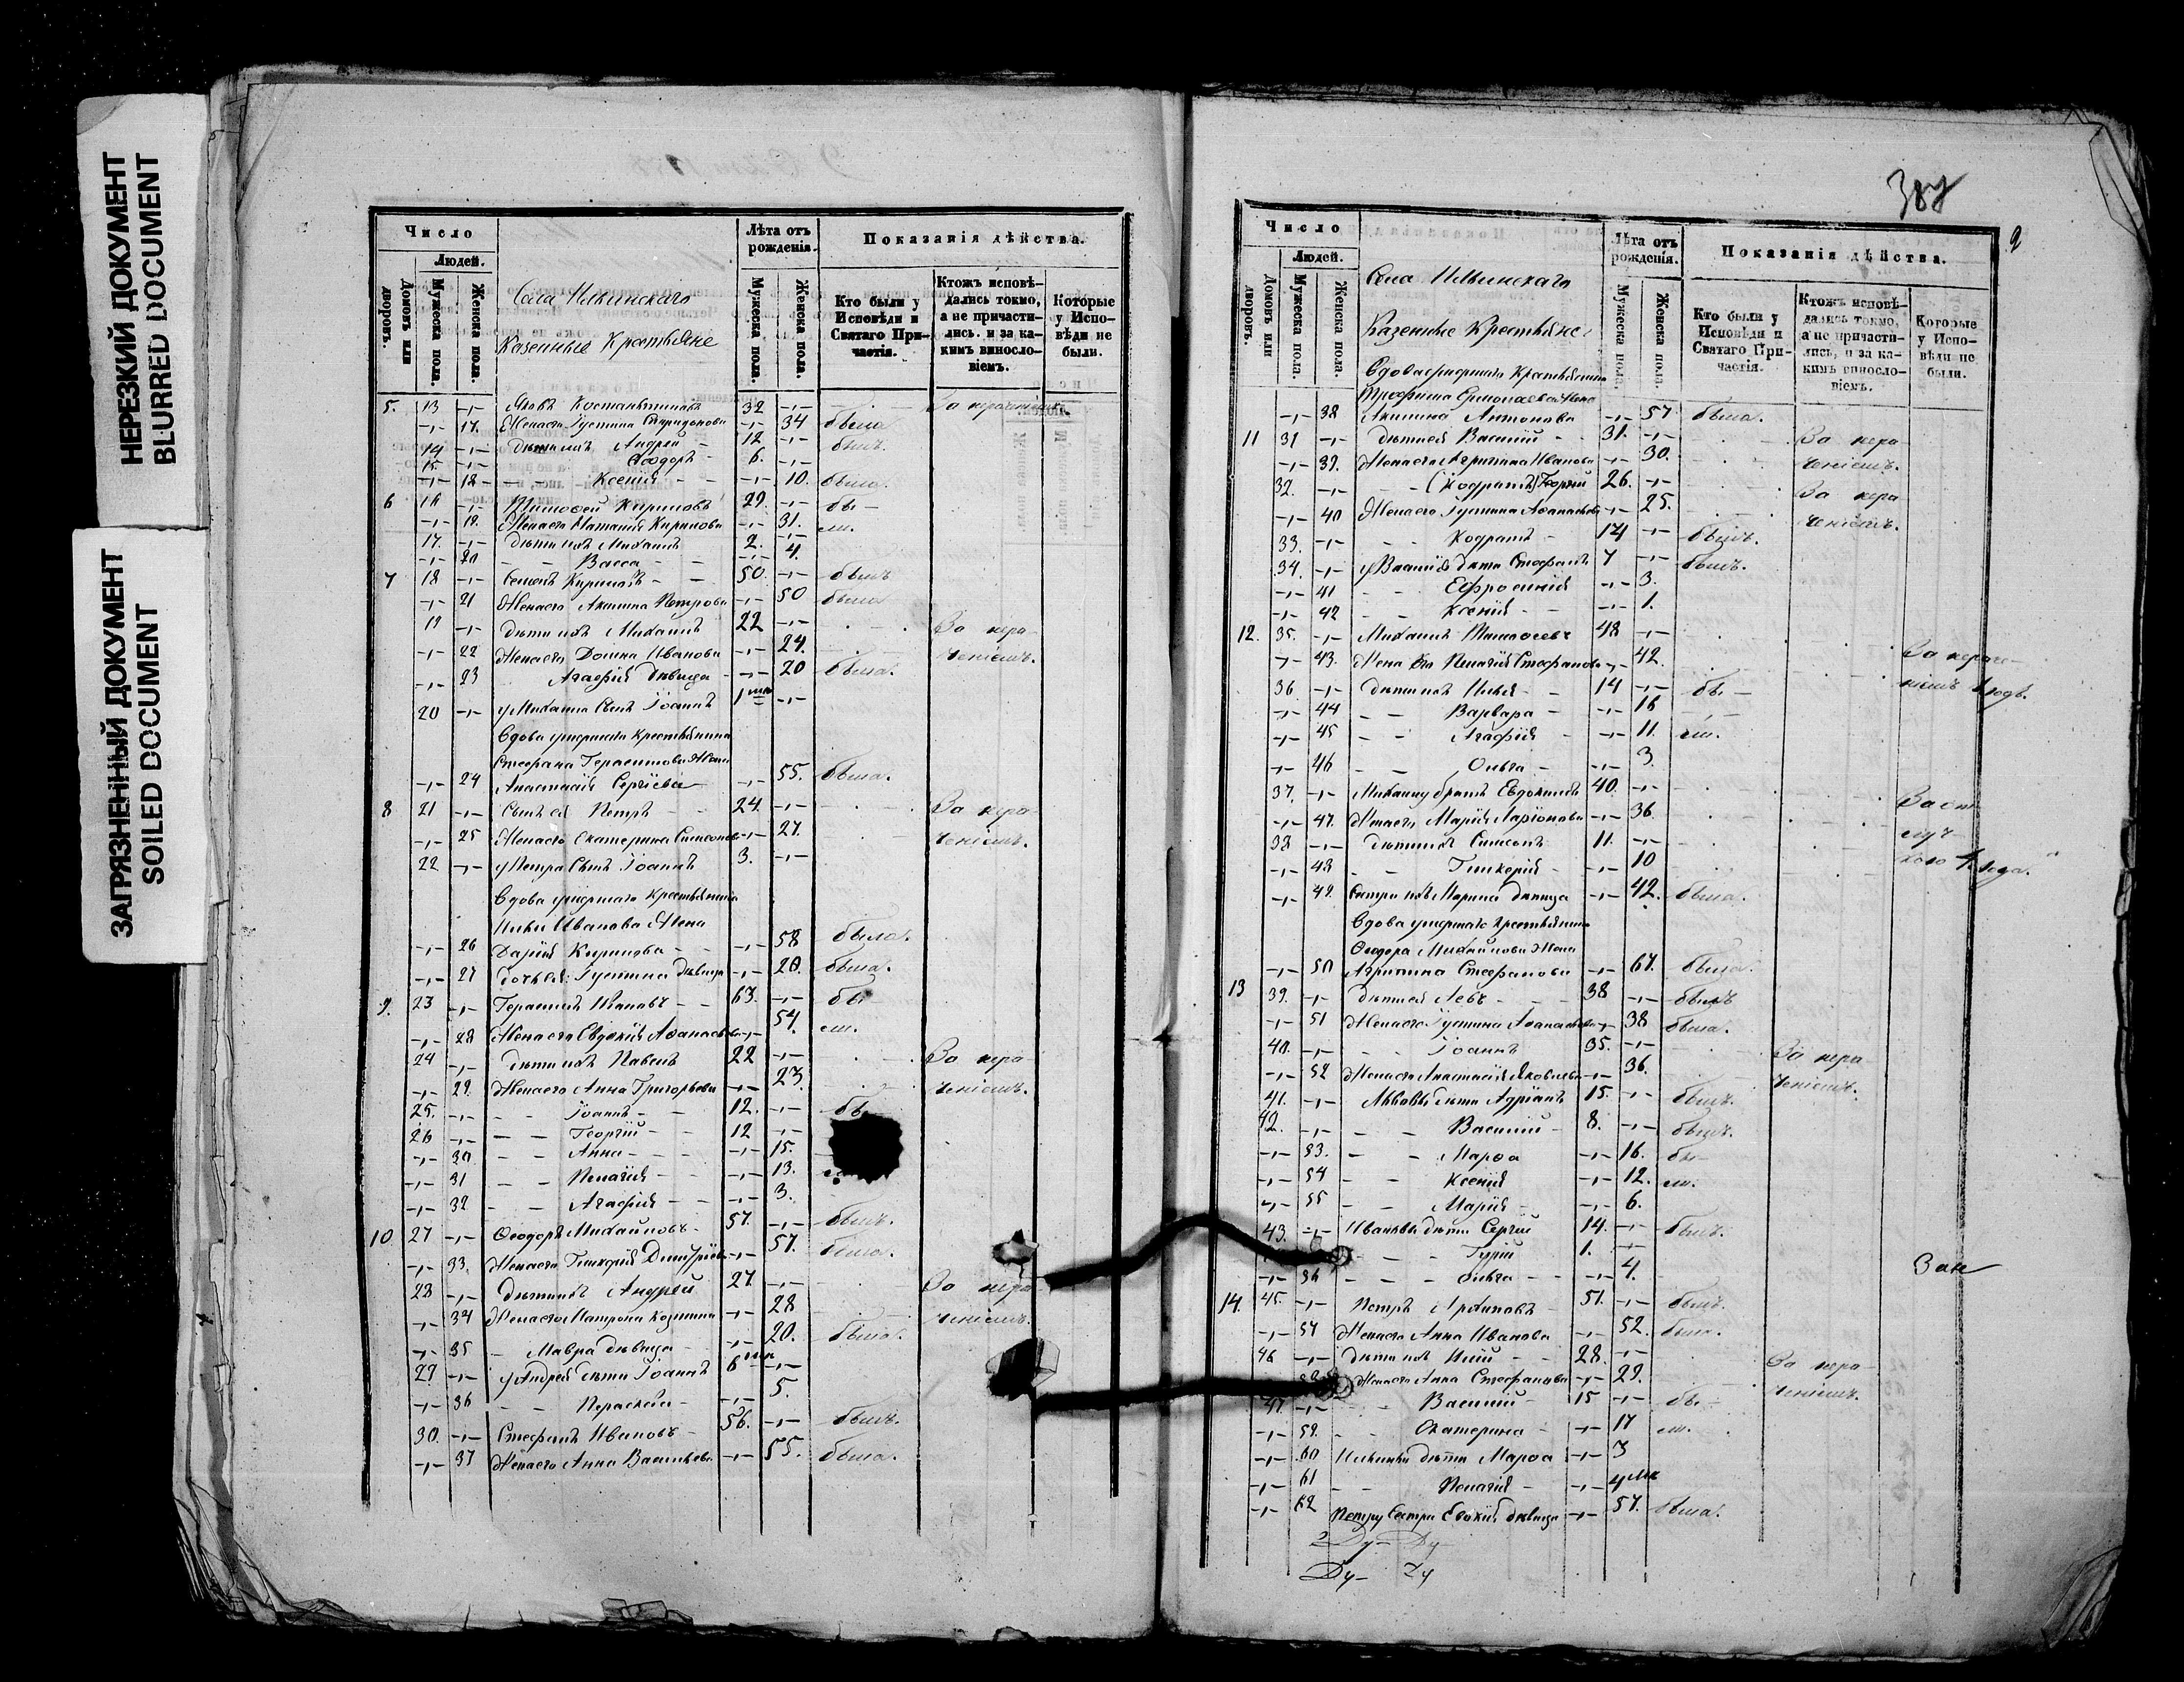 НЕРЕЗКИЙ ДОКУМЕНТ
BLURRED DOCUMENT
ЗАГРЯЗНЕННЫЙ ДОКУМЕНТ
SOILED DOCUMENT
Число
Людей.
Домовъ или дворовъ.
Мужеска пола.
Женска пола.
Села
Казенные Крестьяне
Лѣта отъ рожденія.
Мужеска пола.
Женска пола.
Показанія дѣйства.
Кто были у Исповѣди и Святаго Причастія.
Ктожъ исповѣдались токмо, а не причастились. и за какимъ винословіемъ.
Которые у Исповѣди не были.
5. 13 -„- Яковъ Костантиновъ 32 -„-
-„- 17. Жена его Іустина -„- 34 была
14 -„- Дѣти ихъ Андрей 12 -„- былъ.
15 -„- Ѳеодоръ 6. -„-
-„- 18 Ксенія -„- 10. была.
6 16 -„- Тимоѳей Кириловъ 29. -„- бы-
-„- 19. Жена его Наталія Кирилова -„- 31. ли.
17. -„- Дѣти ихъ Михаилъ 2. -„-
-„- 20 Васса -„- 4.
7 18 -„- Семенъ 50. -„- былъ
-„- 21 Жена его Акилина Петрова -„- 50 была
19 -„- Дѣти ихъ Михаилъ 22 -„- За нера-
-„- 22 Жена его Домна Иванова -„- 24. ченіемъ.
-„- 23 Агафія дѣвица -„- 20 была.
20 -„- у Михаила сынъ Іоаннъ 1 -„-
Вдова умершаго крестьянина
Стефана Герасимова Жена
-„- 24 Анастасія Сергіева -„- 55. была.
8 21 -„- Сынъ ея Петръ 24. -„- За нера-
-„- 25 Жена его Екатерина Симеонова -„- 27. ченіемъ.
22 -„- у Петра сынъ Іоаннъ 3. -„-
Вдова умершаго крестьянина
Ивана Жена
-„- 26 Дарія Кирилова -„- 58 была.
-„- 27 Дочь ея Іустина дѣвица -„- 20. была.
9. 23 -„- Герасимъ Ивановъ 63. -„- бы
-„- 28 Жена его Евдокія Аѳанасьева -„- 54. ли.
24 -„- Дѣти ихъ Павелъ 22 -„- За нера-
-„- 29. Жена его Анна Григорьева -„- 23. ченіемъ.
25. -„- Іоаннъ 12. -„- бы
26 -„- Георгій 12 -„-
-„- 30 Анна -„- 15.
-„- 31 Пелагія -„- 13.
-„- 32 Агафія -„- 3.
10 27 -„- Ѳеодоръ Михайловъ 57. -„- былъ.
-„- 33. Жена его Гликерія Димитріева -„- 57. была.
28 -„- Дѣти ихъ Андрей 27. -„- За нера-
-„- 34 Жена его Матрона Козмина -„- 28 ченіемъ.
-„- 35 Мавра дѣвица -„- 20. была.
29 -„- у Андрея дѣти Іоаннъ 6 -„-
-„- 36 Параскева -„- 5.
30. -„- Стефанъ Ивановъ 56. -„- былъ.
-„- 37 Жена его Анна Васильева -„- 55. была.
2
Число
Людей.
Домовъ или дворовъ.
Мужеска пола.
Женска пола.
Села
Казенные Крестьяне
Лѣта отъ рожденія.
Мужеска пола.
Женска пола.
Показанія дѣйства.
Кто были у Исповѣди и Святаго Причастія.
Ктожъ исповѣдались токмо, а не причастились. и за какимъ винословіемъ.
Которые у Исповѣди не были.
Вдова умершаго Крестьянина
Трофима Ермолаева Жена
-„- 38 Акилина Антонова -„- 57 была.
11 31 -„- Дѣти ея Василій 31. -„- За нера-
-„- 39. Жена его Агрипина Иванова -„- 30. ченіемъ.
32. -„- (Кодратъ) Георгій 26. -„- За нера-
-„- 40 Жена его Іустина Аѳанасьева -„- 25. ченіемъ.
33. -„- Кодратъ 14 -„- былъ.
34. -„- у Василія дѣти Стефанъ 7 -„- былъ.
-„- 41 Ефросинія -„- 3.
-„- 42 Ксенія -„- 1.
12. 35. -„- Михаилъ 48 -„-
-„- 43. Жена его Пелагія Стефанова -„- 42.
36 -„- Дѣти ихъ Илья 14 -„- бы-
-„- 44 Варвара -„- 16
-„- 45 Агафія -„- 11. ли.
-„- 46 Ольга -„- 3.
37. -„- Михаилу братъ Евдокимъ 40. -„-
-„- 47. Жена его Марія Ларіонова -„- 36.
38 -„- Дѣти ихъ Симеонъ 11. -„-
-„- 48 Гликерія -„- 10
-„- 49. Сестра ихъ Марина дѣвица -„- 42. была.
Вдова умершаго крестьянина
Ѳеодора Михайлова Жена
-„- 50 Агрипина Стефанова -„- 67. была.
13 39. -„- Дѣти ея Левъ 38 -„- былъ
-„- 51 Жена его Іустина Аѳанасьева -„- 38 была.
40. -„- Іоаннъ 35. -„- За нера-
-„- 52 Жена его Анастасія Яковлева -„- 36. ченіемъ.
41. -„- Львовы дѣти Адріанъ 15. -„- былъ.
42. -„- Василій 8. -„- былъ.
-„- 53. Марѳа -„- 16. бы-
-„- 54 Ксенія -„- 12. ли.
-„- 55 Марія -„- 6.
43. -„- Ивановы дѣти Сергій 14. -„- былъ.
Гурій 1.
-„- 56 Ольга -„- 4.
14. 45. -„- Петръ Архиповъ 51. -„- былъ.
-„- 57 Жена его Анна Иванова -„- 52. была.
46 -„- Дѣти ихъ 28. -„- За нера-
Жена его Анна Стефанова -„- 29. ченіемъ.
47. -„- Василій 15 -„- бы-
-„- 59. Екатерина -„- 17 ли.
-„- 60 дѣти Марѳа -„- 3
-„- 61 Пелагія -„- 4
-„- 62 Петру сестра Евдокія дѣвица -„- 57. была.